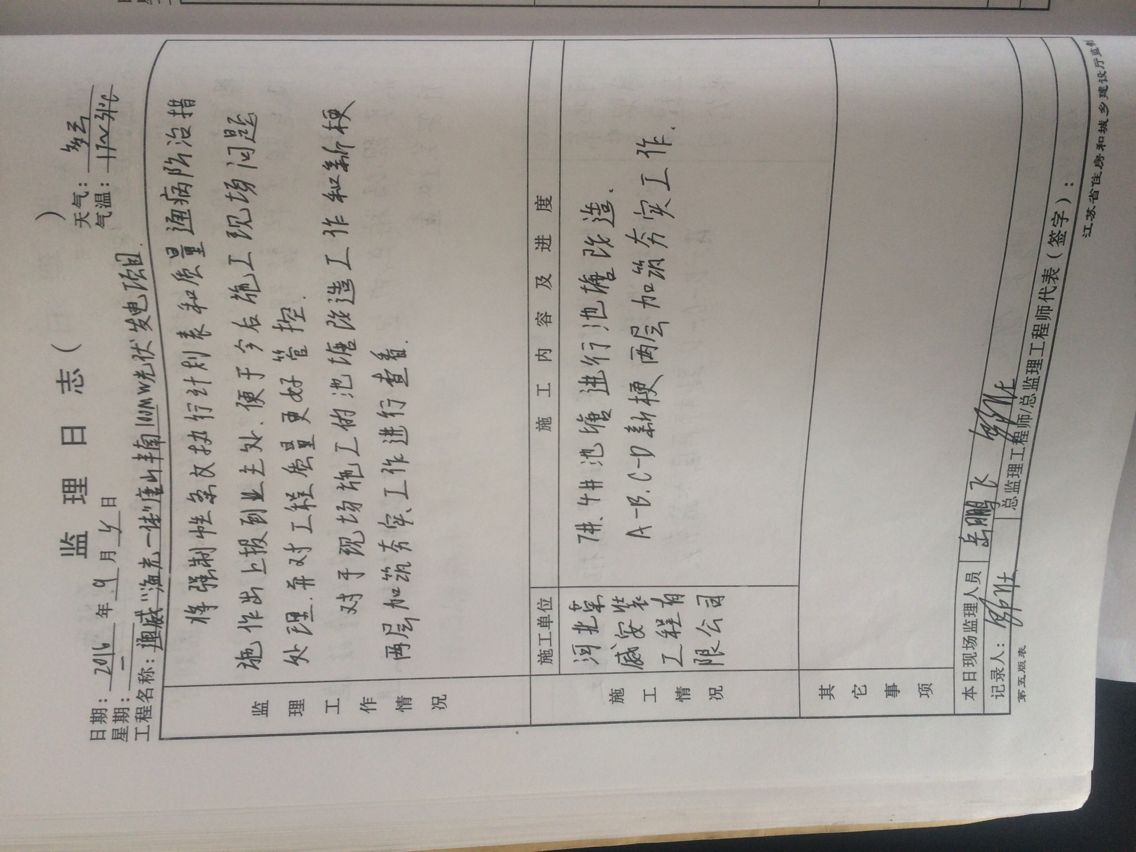 监理日志（ ）
日期：2016年9月4日 天气：多云
星期： 气温：
工程名称："渔光一体"唐山丰南100MW光伏发电项目
监理工作情况
将强制性条文执行计划表和质量通病防治措
施作出上报到业主处、便于今后施工现场问题
处理.并对工程质量更好管控.
对于现场施工的池塘改造工作和新梗
两层加筑夯实.工作进行查看.
施工情况
施工单位 施工内容及进度
河北
威安装
工程有
限公司
7#、4#池塘进行池塘改造.
A-B、C-D新梗两层加筑夯实工作.
其它事项
本日现场监理人员 岳鹏飞
记录人： 总监理工程师/总监理工程师代表（签字）：
第五版表 江苏省住房和城乡建设厅监制